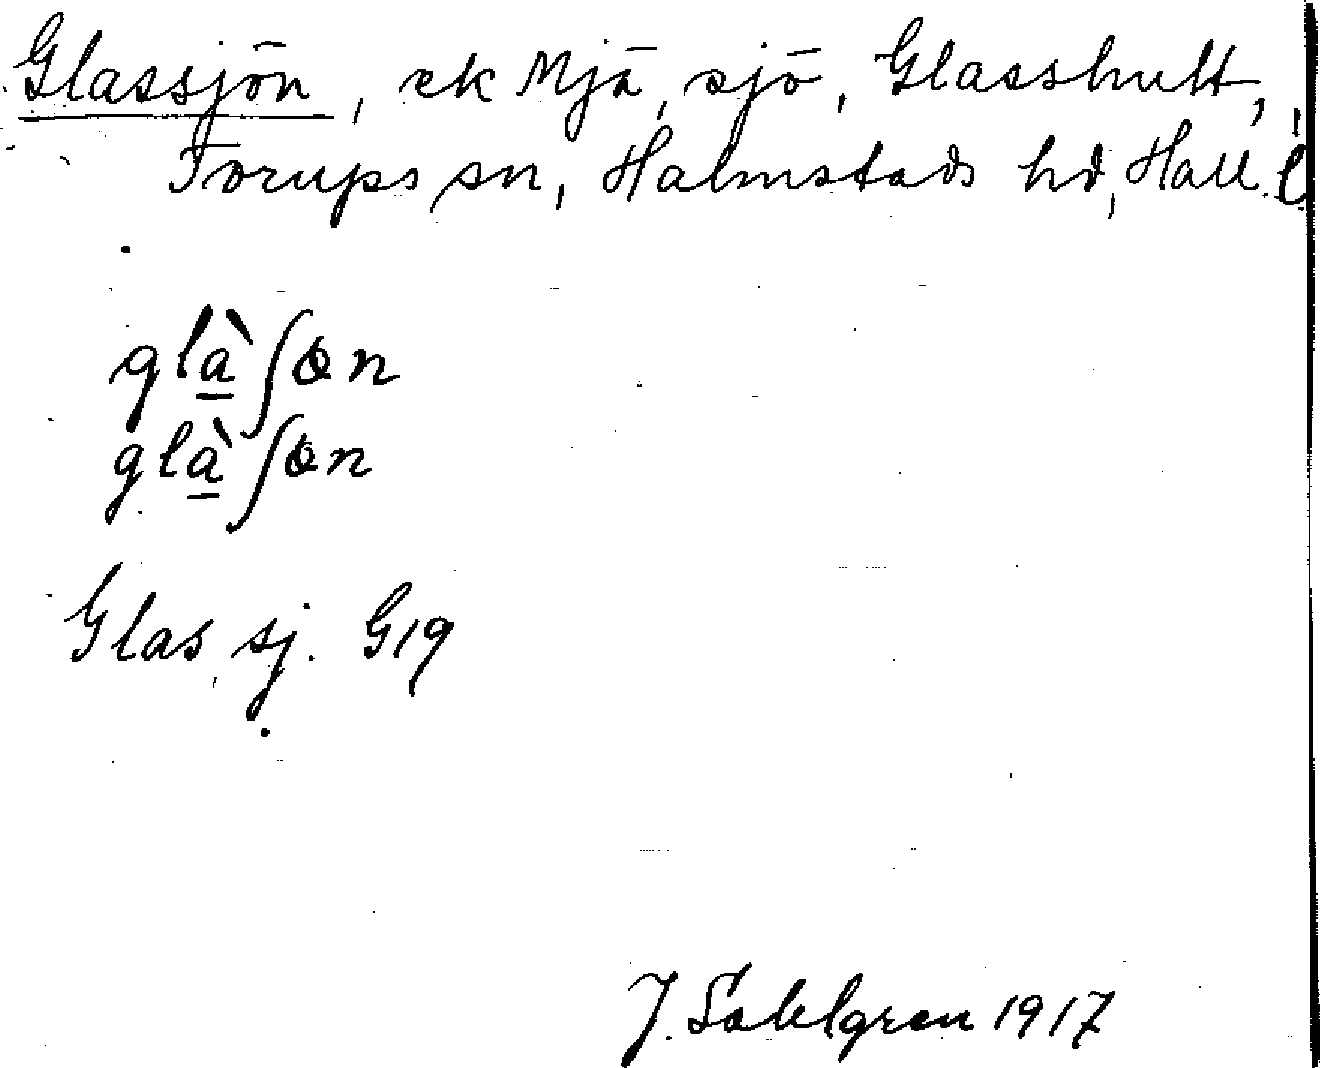 Glassjön, ek Mjä, sjö, Glasshult,
Torups sn, Halmstads hd, Hall. l
glàʃɵn
glàʃɵn
Glas sj. G19
J. Sahlgren 1917